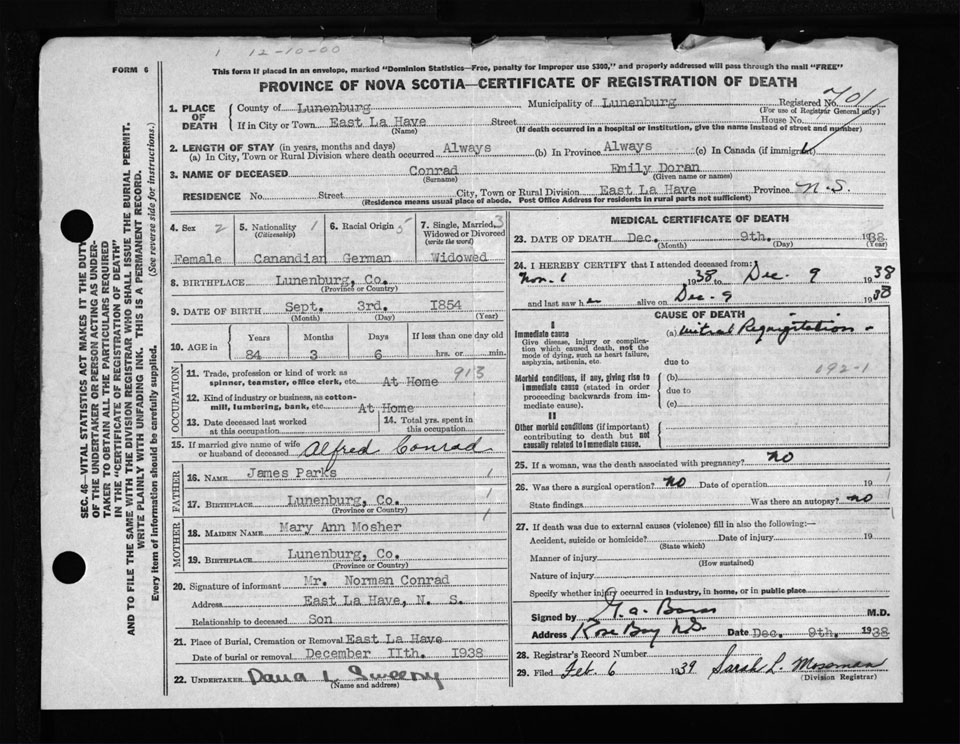 1 12-10-00
FORM 6
This form if placed in an envelope, marked "Dominion Statistics—Free, penalty for improper use $300," and properly addressed will pass through the mail "FREE"
PROVINCE OF NOVA SCOTIA—CERTIFICATE OF REGISTRATION OF DEATH
SEC. 46—VITAL STATISTICS ACT MAKES IT THE DUTY
OF THE UNDERTAKER OR PERSON ACTING AS UNDER-
TAKER TO OBTAIN ALL THE PARTICULARS REQUIRED
IN THE "CERTIFICATE OF REGISTRATION OF DEATH"
AND TO FILE THE SAME WITH THE DIVISION REGISTRAR WHO SHALL ISSUE THE BURIAL PERMIT.
WRITE PLAINLY WITH UNFADING INK. THIS IS A PERMANENT RECORD.
Every item of information should be carefully supplied. (See reverse side for instructions.)
1. PLACE OF DEATH
County of Lunenburg Municipality of Lunenburg Registered No. 701
(For use of Registrar General only)
If in City or Town East La Have Street House No.
(Name) (If death occurred in a hospital or institution, give the name instead of street and number)
2. LENGTH OF STAY (in years, months and days)
(a) In City, Town or Rural Division where death occurred Always (b) In Province Always (c) In Canada (if immigrant)
3. NAME OF DECEASED Conrad Emily Doran
(Surname) (Given name or names)
RESIDENCE No. Street City, Town or Rural Division East La Have Province N.S.
(Residence means usual place of abode. Post Office Address for residents in rural parts not sufficient)
4. Sex 2 5. Nationality 1 (Citizenship) 6. Racial Origin 5 7. Single, Married, 3 Widowed or Divorced (write the word)
Female Canandian German Widowed
8. BIRTHPLACE Lunenburg, Co.
(Province or Country)
9. DATE OF BIRTH Sept. 3rd. 1854
(Month) (Day) (Year)
10. AGE in Years Months Days If less than one day old
84 3 6 hrs. or min.
OCCUPATION
11. Trade, profession or kind of work as 913
spinner, teamster, office clerk, etc. At Home
12. Kind of industry or business, as cotton-
mill, lumbering, bank, etc. At Home
13. Date deceased last worked at this occupation
14. Total yrs. spent in this occupation
15. If married give name of wife or husband of deceased Alfred Conrad
FATHER
16. NAME James Parks 1
17. BIRTHPLACE Lunenburg, Co. 1
(Province or Country) 1
MOTHER
18. MAIDEN NAME Mary Ann Mosher
19. BIRTHPLACE Lunenburg, Co.
(Province or Country)
20. Signature of informant Mr. Norman Conrad
Address East La Have, N. S.
Relationship to deceased Son
21. Place of Burial, Cremation or Removal East La Have
Date of burial or removal December IIth. 1938
22. UNDERTAKER Dana L Sweeny
(Name and address)
MEDICAL CERTIFICATE OF DEATH
23. DATE OF DEATH Dec. 9th. 1938
(Month) (Day) (Year)
24. I HEREBY CERTIFY that I attended deceased from:
Nov. 1 1938 to Dec. 9 1938
and last saw her alive on Dec. 9 1938
CAUSE OF DEATH
I
Immediate cause (a) Mitral Regurgitation
Give disease, injury or complica-
tion which caused death, not the
mode of dying, such as heart failure,
asphyxia, asthenia, etc.
due to
092-1
Morbid conditions, if any, giving rise to (b)
immediate cause (stated in order due to
proceeding backwards from im-
mediate cause). (c)
II
Other morbid conditions (if important)
contributing to death but not
causally related to immediate cause.
25. If a woman, was the death associated with pregnancy? no
26. Was there a surgical operation? no Date of operation 19
State findings Was there an autopsy? no
27. If death was due to external causes (violence) fill in also the following:—
Accident, suicide or homicide? Date of injury 19
(State which)
Manner of injury
(How sustained)
Nature of injury
Specify whether injury occurred in industry, in home, or in public place
Signed by M.D.
Address Rose Bay N.S. Date Dec. 9th. 1938
28. Registrar's Record Number
29. Filed Feb. 6 1939 Sarah L. Mossman
(Division Registrar)